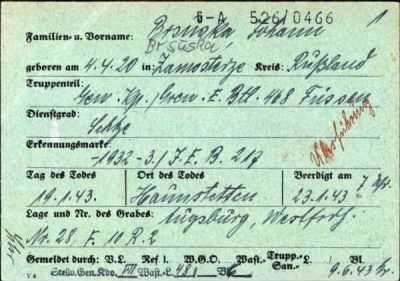 6-A 526/0466 1
Familien- u. Vorname: Brsuska Johann
Brsuska,
geboren am 4.4.20 in: Zamosterze Kreis: Rußland
Truppenteil:
Gen. Kp./Gren. E. Btl. 468 Füssen
Dienstgrad:
Schtze
Erkennungsmarke:
-1932-3./J.E.B. 217
Tag des Todes Ort des Todes Beerdigt am 7 Uhr.
19.1.43. Haunstetten 23.1.43
Lage und Nr. des Grabes: Augsburg, Westfrdh.
Nr. 28, F. 10 R. 2
Gemeldet durch: V.L. Ref. I. W.G.O. Wast.- Trupp.- San.- L. Bl.
V 4 Stellv. Gen. Kdo. VII Wast.-L. 481 Bl. 9.6.43